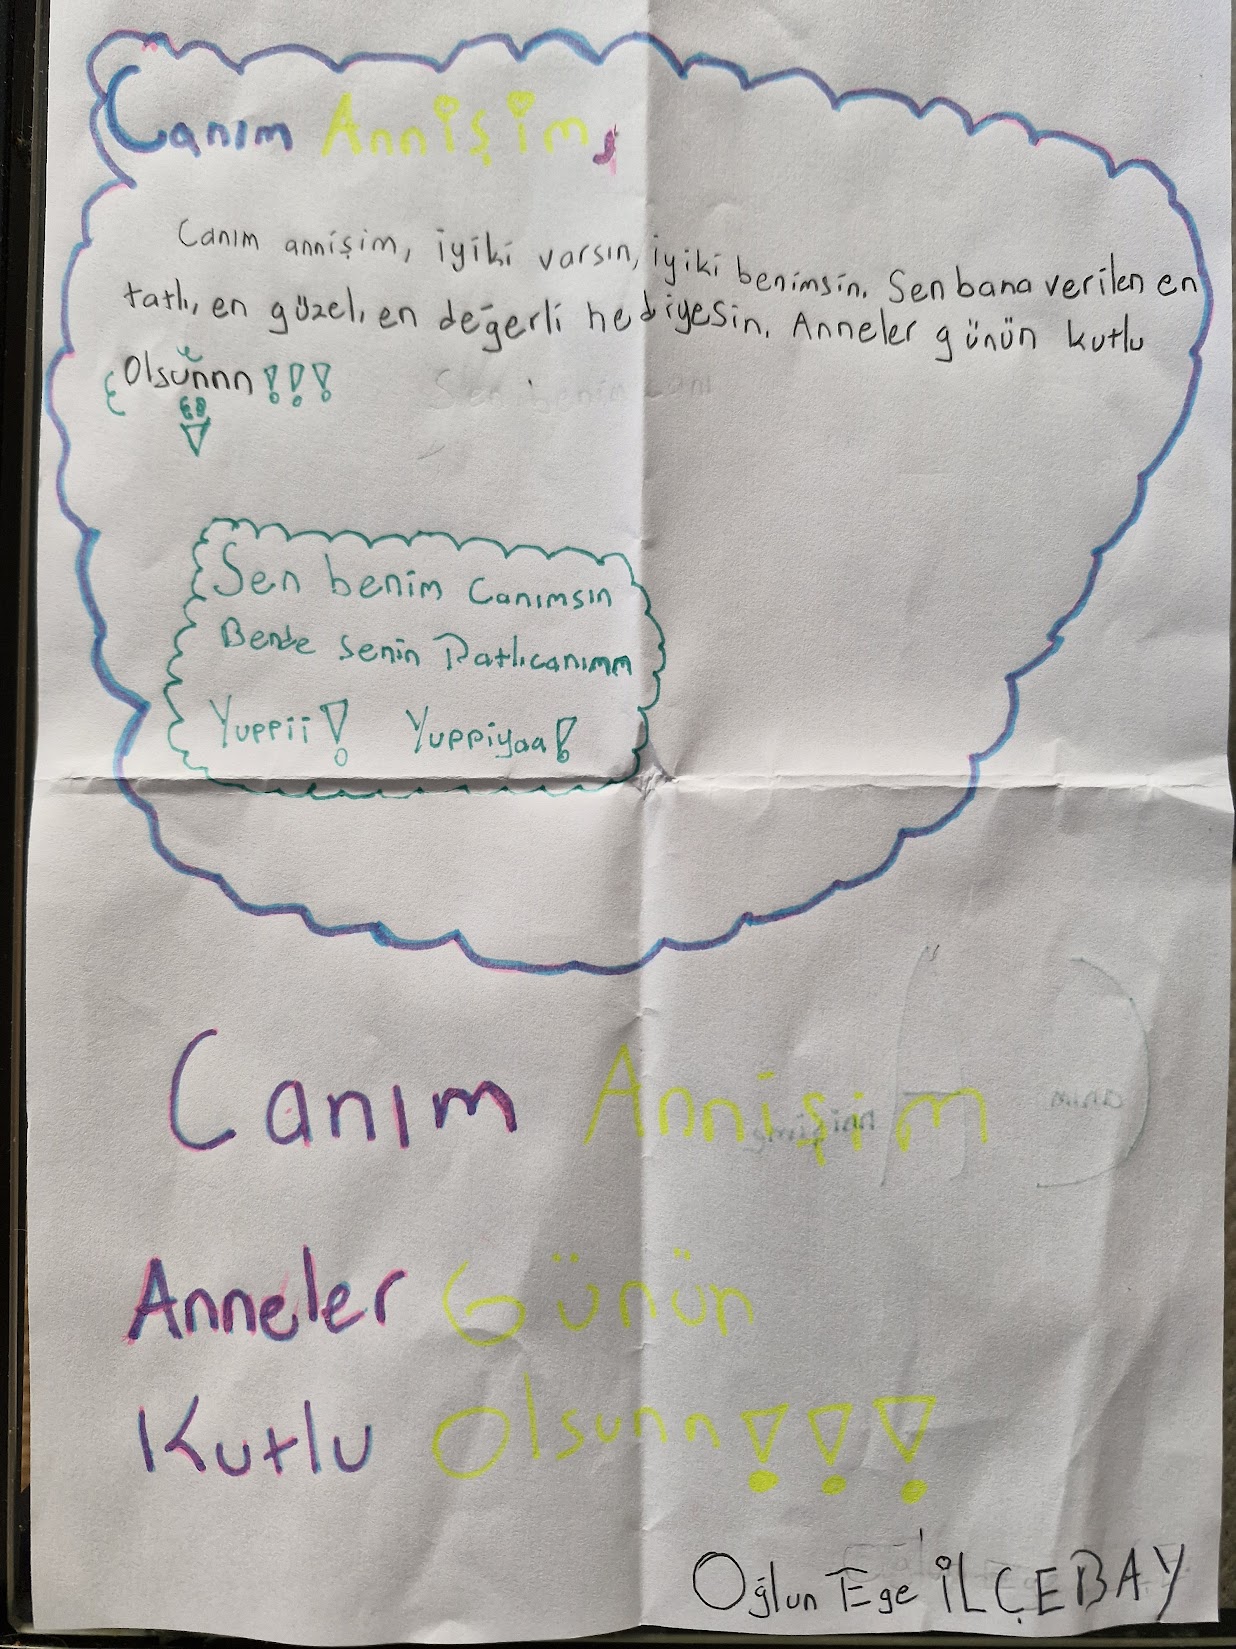 Canım Annişim,
Canım annişim, iyiki varsın, iyiki benimsin. Sen bana verilen en
tatlı, en güzel, en değerli hediyesin. Anneler günün kutlu
Olsunnn!!!
Sen benim canı
Sen benim canımsın
Bende senin Patlıcanımm
Yuppii! Yuppiyaa!
Canım Annişim
Anneler Günün
Kutlu Olsunn!!!
Oğlun Ege İLÇEBAY